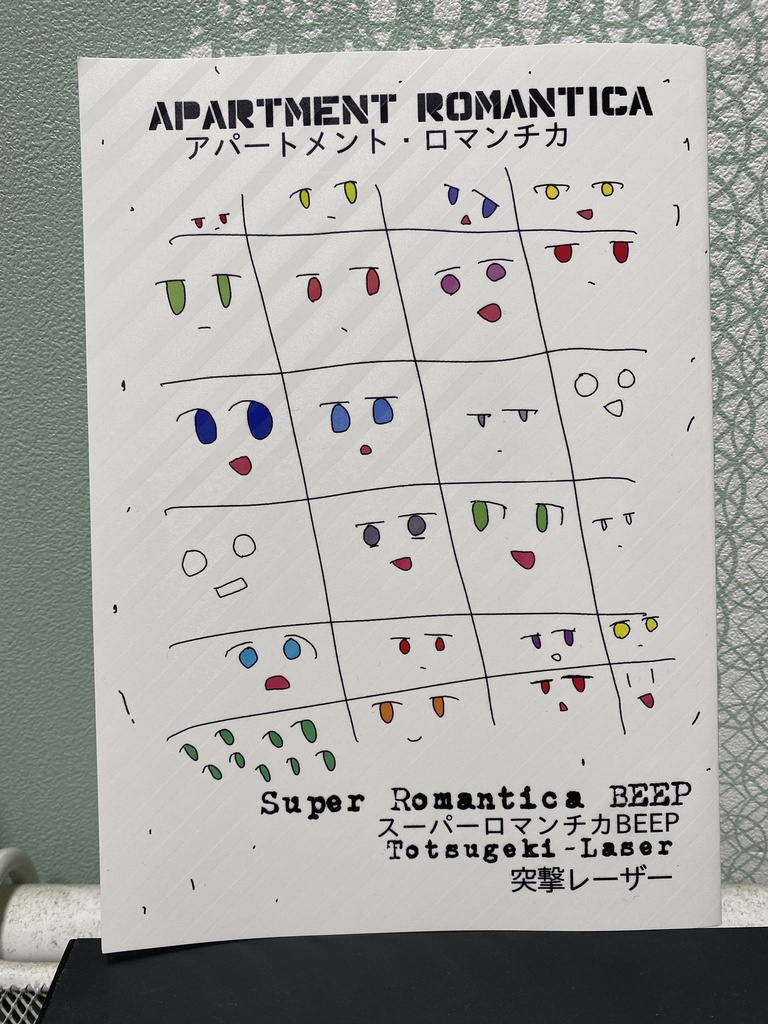 APARTMENT ROMANTICA
アパートメント・ロマンチカ
Super Romantica BEEP
スーパーロマンチカBEEP
Totsugeki-Laser
突撃レーザー